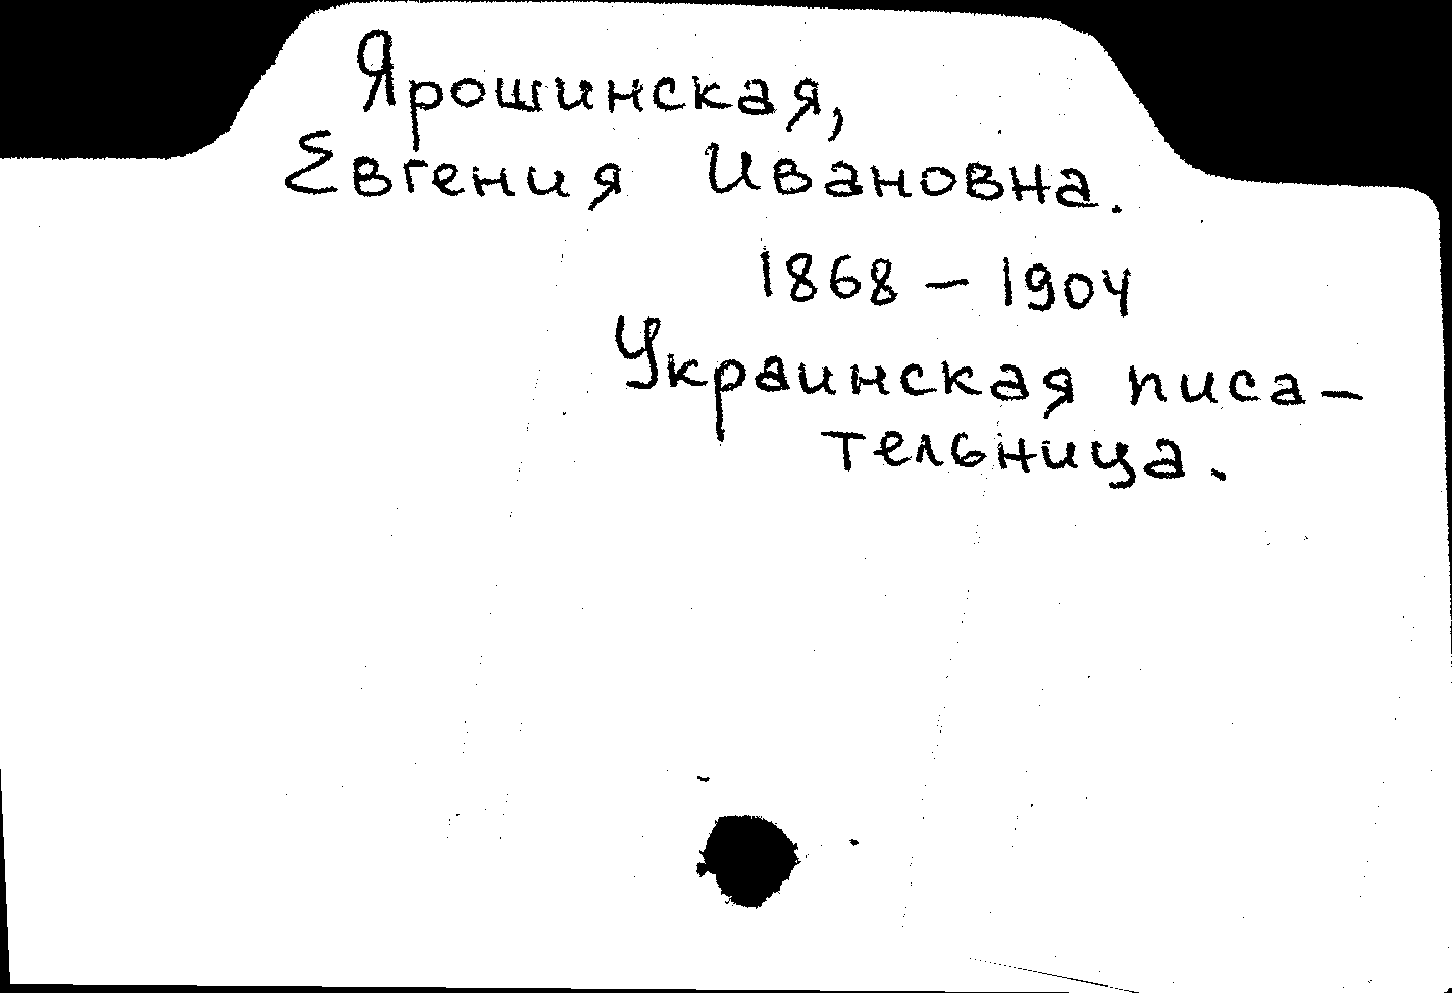 Ярошинская,
Евгения Ивановна.
1868 – 1904
Украинская писа-
тельница.